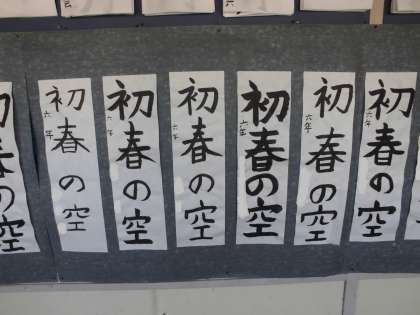 初春の空
六年
初春の空
六年
初春の空
六年
初春の空
六年
初春の空
六年
初春の空
六年
初春の空